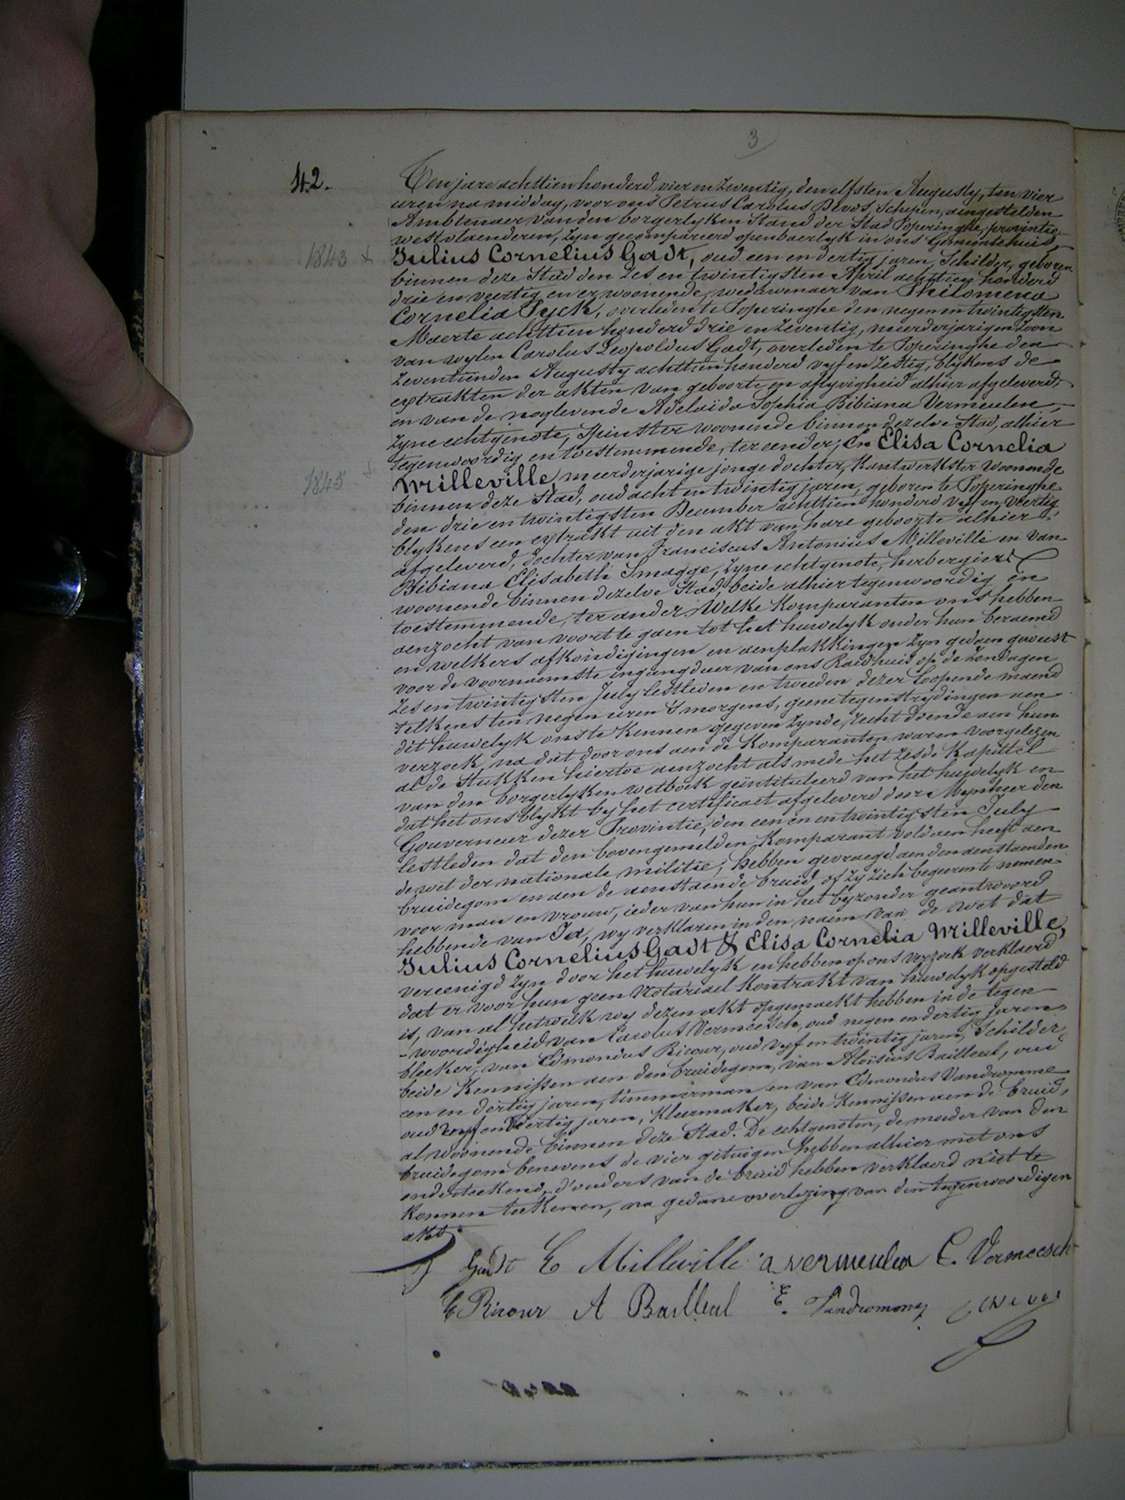 3
42.
Ten jare achttien honderd vier en zeventig, den elfsten Augusty, ten vier
uren na middag, voor ons Petrus Carolus Devos, Schepen, aengestelden
Ambtenaer van den borgerlyken Stand der Stad Poperinghe, provintie
westvlaenderen, zyn gecompareerd openbaerlyk in ons Gemeentehuis,
1843 Julius Cornelius Gadt, oud een en dertig jaren, Schilder, geboren
binnen deze Stad den zes en twintigsten April achttien honderd
drie en veertig, en er woonende, weduwenaer van Philomena
Cornelia Tyck, overleden te Poperinghe den negen en twintigsten
Maerte achttien honderd drie en zeventig, meerderjarigen zoon
van wylen Carolus Leopoldus Gadt, overleden te Poperinghe den
zeventienden Augusty achttien honderd vyf en zestig, blykens de
extrakten der akten van geboorte en aflyvigheid alhier afgeleverd,
en van de noglevende Adelaida Sophia Bibiana Vermeulen,
zyne echtgenote, Spinster woonende binnen dezelve Stad, alhier
tegenwoordig en toestemmende, ter eender; En Elisa Cornelia
1845 Milleville, meerderjarige jonge dochter, Kantwerkster woonende
binnen deze Stad, oud acht en twintig jaren, geboren te Poperinghe
den drie en twintigsten December achttien honderd vyf en veertig
blykens een extrakt uit den akt van hare geboorte alhier
afgeleverd, dochter van Franciscus Antonius Milleville en van
Bibiana Elisabeth Smagge, zyne echtgenote, herbergiers
woonende binnen dezelve Stad, beide alhier tegenwoordig en
toestemmende, ter ander. Welke Komparanten ons hebben
aenzocht van voort te gaen tot het huwelyk onder hun beraemd
en welkers afkondigingen en aenplakkingen zyn gedaen geweest
voor de voornaemste ingangdeur van ons Raedhuis op de zondagen
zes en twintigsten July lestleden en tweeden dezer loopende maend
telkens ten negen uren 's morgens, geene tegenstrydingen aen
dit huwelyk ons te kennen gegeven zynde, recht doende aen hun
verzoek, na dat door ons aen de Komparanten waren voorgelezen
al de Stukken hiertoe aenzocht als mede het zesde Kapittel
van den borgerlyken wetboek geïntituleerd van het huwelyk en
dat het ons blykt by het certificaet afgeleverd door Mynheer den
Gouverneur dezer Provintie, den een en twintigsten July
lestleden dat den bovengemelden Komparant voldaen heeft aen
de wet der nationale militie; hebben gevraegd aen den aenstaenden
bruidegom en aen de aenstaende bruid, of zy zich begeeren te nemen
voor man en vrouw, ieder van hun in het byzonder geantwoord
hebbende van Ja, wy verklaren in den naem van de wet dat
Julius Cornelius Gadt & Elisa Cornelia Milleville,
vereenigd zyn door het huwelyk en hebben op ons verzoek verklaerd
dat er voor hun geen Notarieel Kontrakt van huwelyk opgesteld
is, van al hetwelk wy dezen akt opgemaekt hebben in de tegen-
-woordigheid van Carolus Vermeesch, oud negen en dertig jaren
bleeker, van Edmondus Ricour, oud vyf en twintig jaren, Schilder,
beide Kennissen aen den bruidegom, van Aloisius Bailleul, oud
een en dertig jaren, timmerman en van Edmondus Vandromme
oud vyf en veertig jaren, Kleermaker, beide Kennissen aen de bruid,
al woonende binnen deze Stad. De echtgenoten, de moeder van den
bruidegom benevens de vier getuigen hebben alhier met ons
onderteekend, d'ouders van de bruid hebben verklaerd niet te
konnen teekenen, na gedane overlezing van den tegenwoordigen
akt.
J Gadt E Milleville a vermeulen C. Vermeesch
E Ricour A Bailleul E. Vandromme